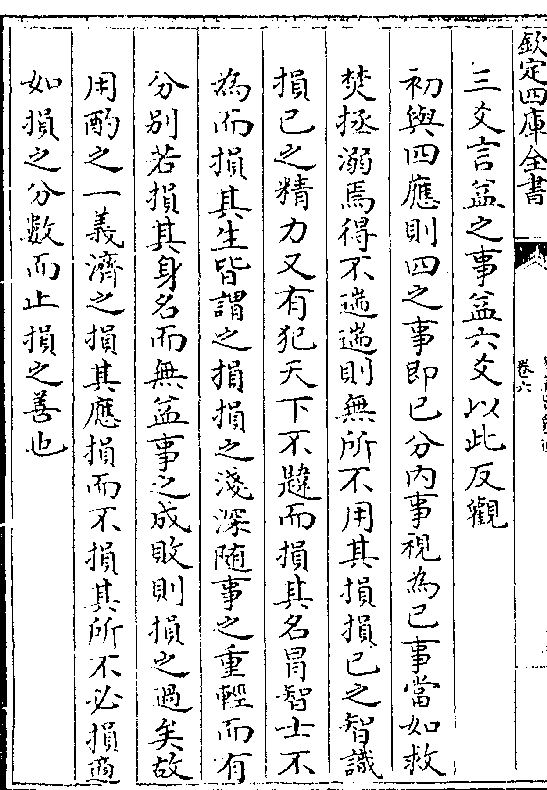 欽定四庫全書
卷六
三爻言益之事益六爻以此反觀
初與四應則四之事即已分內事視為已事當如救
焚拯溺焉得不遄遄則無所不用其損損已之智識
損已之精力又有犯天下不韙而損其名冒智士不
為而損其生皆謂之損損之淺深随事之重輕而有
分别若損其身名而無益事之成敗則損之過矣故
用酌之一義濟之損其應損而不損其所不必損適
如損之分數而止損之善也